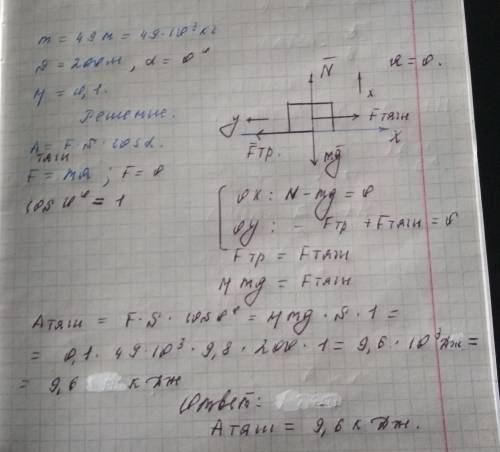 m = 49т = 49·10³кг
S = 200м, α = 0°
μ = 0,1.
Решение.
Aтяги = F·S·cosα.
F = ma ; F = 0
cos 0° = 1
N a = 0.
x
y Fтяги
Fтр. mg X
OX: N - mg = 0
OY: - Fтр + Fтяги = 0
Fтр = Fтяги
μmg = Fтяги
Aтяги = F·S·cos0° = μmg·S·1 =
= 0,1·49·10³·9,8·200·1 = 9,6·10³Дж =
= 9,6 кДж
Ответ:
Aтяги = 9,6 кДж.